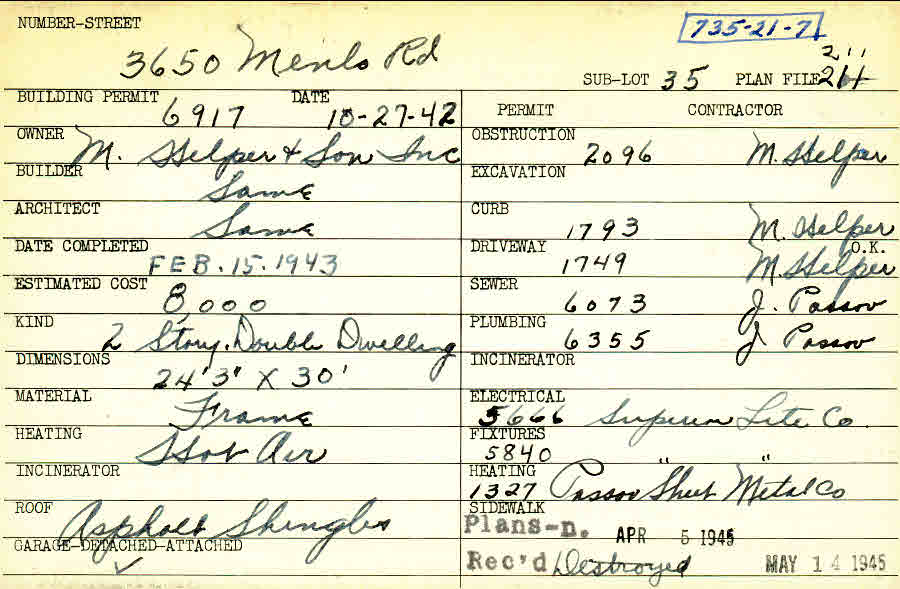 NUMBER-STREET
735-21-7
3650 Menlo Rd
211
SUB-LOT 35 PLAN FILE 211
BUILDING PERMIT 6917 DATE 10-27-42
PERMIT CONTRACTOR
OWNER M. Helper & Son Inc
OBSTRUCTION 2096 M. Helper
BUILDER Same
EXCAVATION
ARCHITECT Same
CURB 1793 M. Helper
DATE COMPLETED FEB. 15. 1943
DRIVEWAY 1749 M. Helper O.K.
ESTIMATED COST 8,000
SEWER 6073 J. Passov
KIND 2 Story. Double Dwelling
PLUMBING 6355 J Passov
DIMENSIONS 24'3" X 30'
INCINERATOR
MATERIAL Frame
ELECTRICAL 5666 Superior Lite Co.
HEATING Hot Air
FIXTURES 5840 " "
INCINERATOR
HEATING 1327 Passov Sheet Metal Co
ROOF Asphalt Shingles
SIDEWALK
Plans-D. APR 5 1945
GARAGE-DETACHED-ATTACHED
✓
Rec'd Destroyed MAY 14 1945